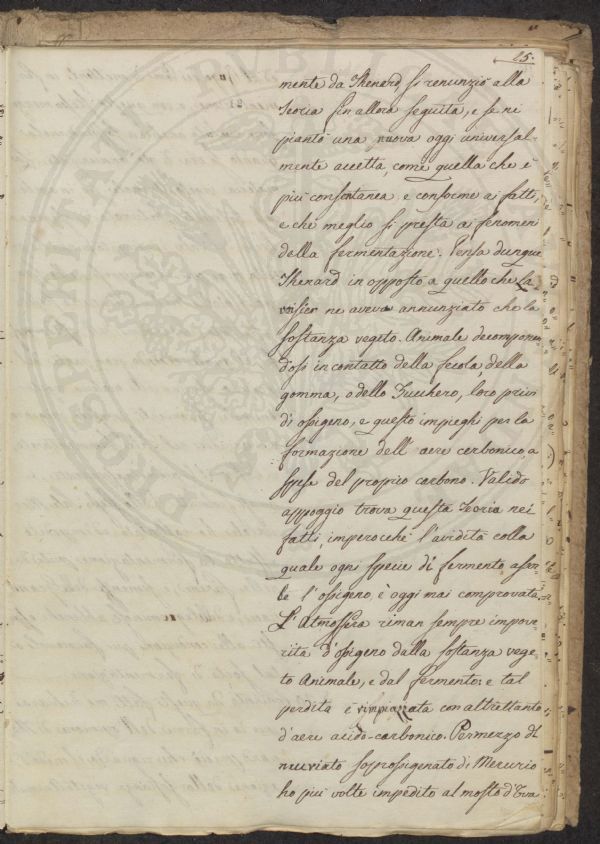 25.
mente da Thenard, si renunziò alla
Teoria fin allora seguita, e se ne
piantò una nuova oggi universal-
mente accetta, come quella che è
più consentanea, e conforme ai fatti
e che meglio si presta ai fenomeni
della fermentazione. Pensa dunque
Thenard in opposto a quello che La-
voisier ne aveva annunziato che la
sostanza vegeto-Animale decomponen
dosi in contatto della fecola, della
gomma, o dello Zucchero, loro privi
di ossigeno, e questo impieghi per la
formazione dell'aere carbonico, a
spese del proprio carbono. Valido
appoggio trova questa Teoria nei
fatti, imperocchè l'avidità colla
quale ogni specie di fermento assor-
be l'ossigeno è oggi mai comprovata.
L'Atmosfera riman sempre impove-
rita d'ossigeno dalla sostanza vege-
to Animale, e dal fermento; e tal
perdita è rimpiazzata con altrettanto
d'aere acido-carbonico. Per mezzo di
muriato soprossigenato di Mercurio
ho più volte impedito al mosto d'Uva
PVBLIC
PROSPERITAT